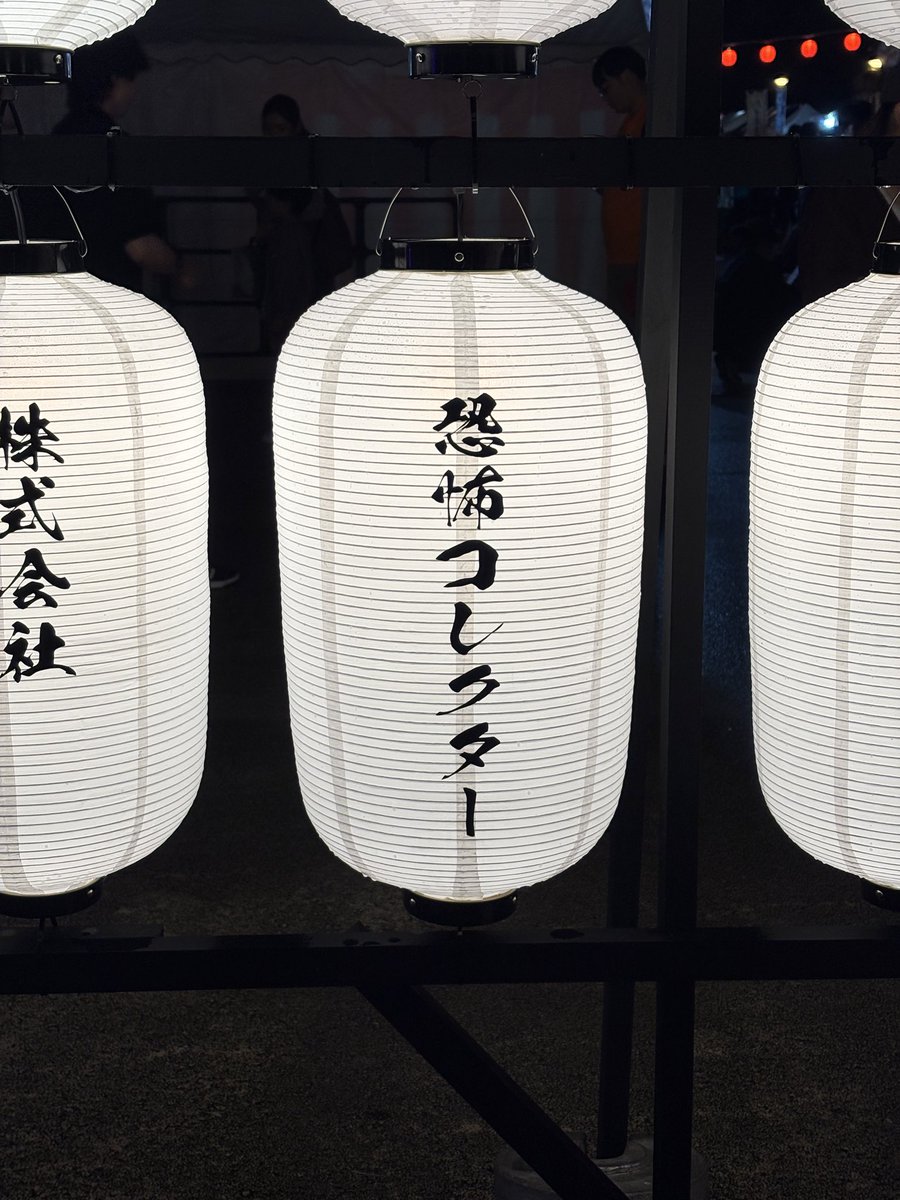 恐怖コレクター
株式会社